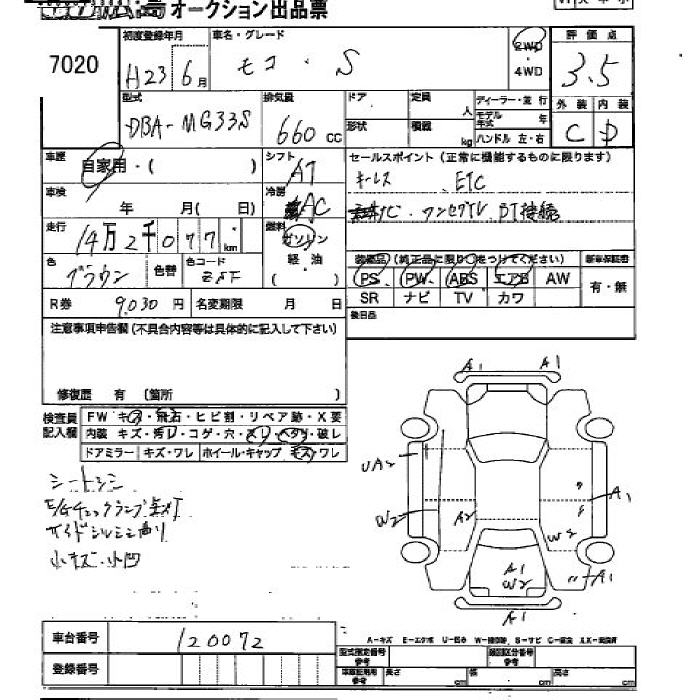 オークション出品票
7020
初度登録年月
H23 6月
車名・グレード
モコ・S
2WD
4WD
評価点
3.5
型式
DBA-MG33S
排気量
660 CC
ドア
定員
人
形状
積載
kg
ディーラー・並行
モデル年式
年
ハンドル 左・右
外装
内装
C
D
車歴
自家用・( )
シフト
AT
セールスポイント (正常に機能するものに限ります)
キーレス ETC
ナビ・ワンセグTV BT接続
車検
年 月( 日)
冷房
AC
走行
14万2千077km
燃料
ガソリン
軽・油
( )
色
ブラウン
色替
色コード
装備品 (純正品に限り○をつけてください)
新車保証書
PS PW ABS エアB AW
有・無
SR ナビ TV カワ
R券
9,030 円
名変期限 月 日
後日品
注意事項申告欄(不具合内容等は具体的に記入して下さい)
修復歴 有 〔箇所 〕
検査員
記入欄
FW キズ・飛石・ヒビ割・リペア跡・X要
内装 キズ・汚レ・コゲ・穴・スレ・ヘタリ・破レ
ドアミラー キズ・ワレ
ホイール・キャップ キズ・ワレ
シートシミ
E/Gチェックランプ点灯
サイドシルシミ有り
小キズ・小凹
A1
A1
UA2
W2
A2
A1
W2
A1
W2
A1
A1
車台番号
120072
登録番号
A-キズ E-エクボ U-凹み
型式指定番号
参考
類別区分番号
参考
車庫証明用
参考
長さ
cm
幅
cm
高さ
cm